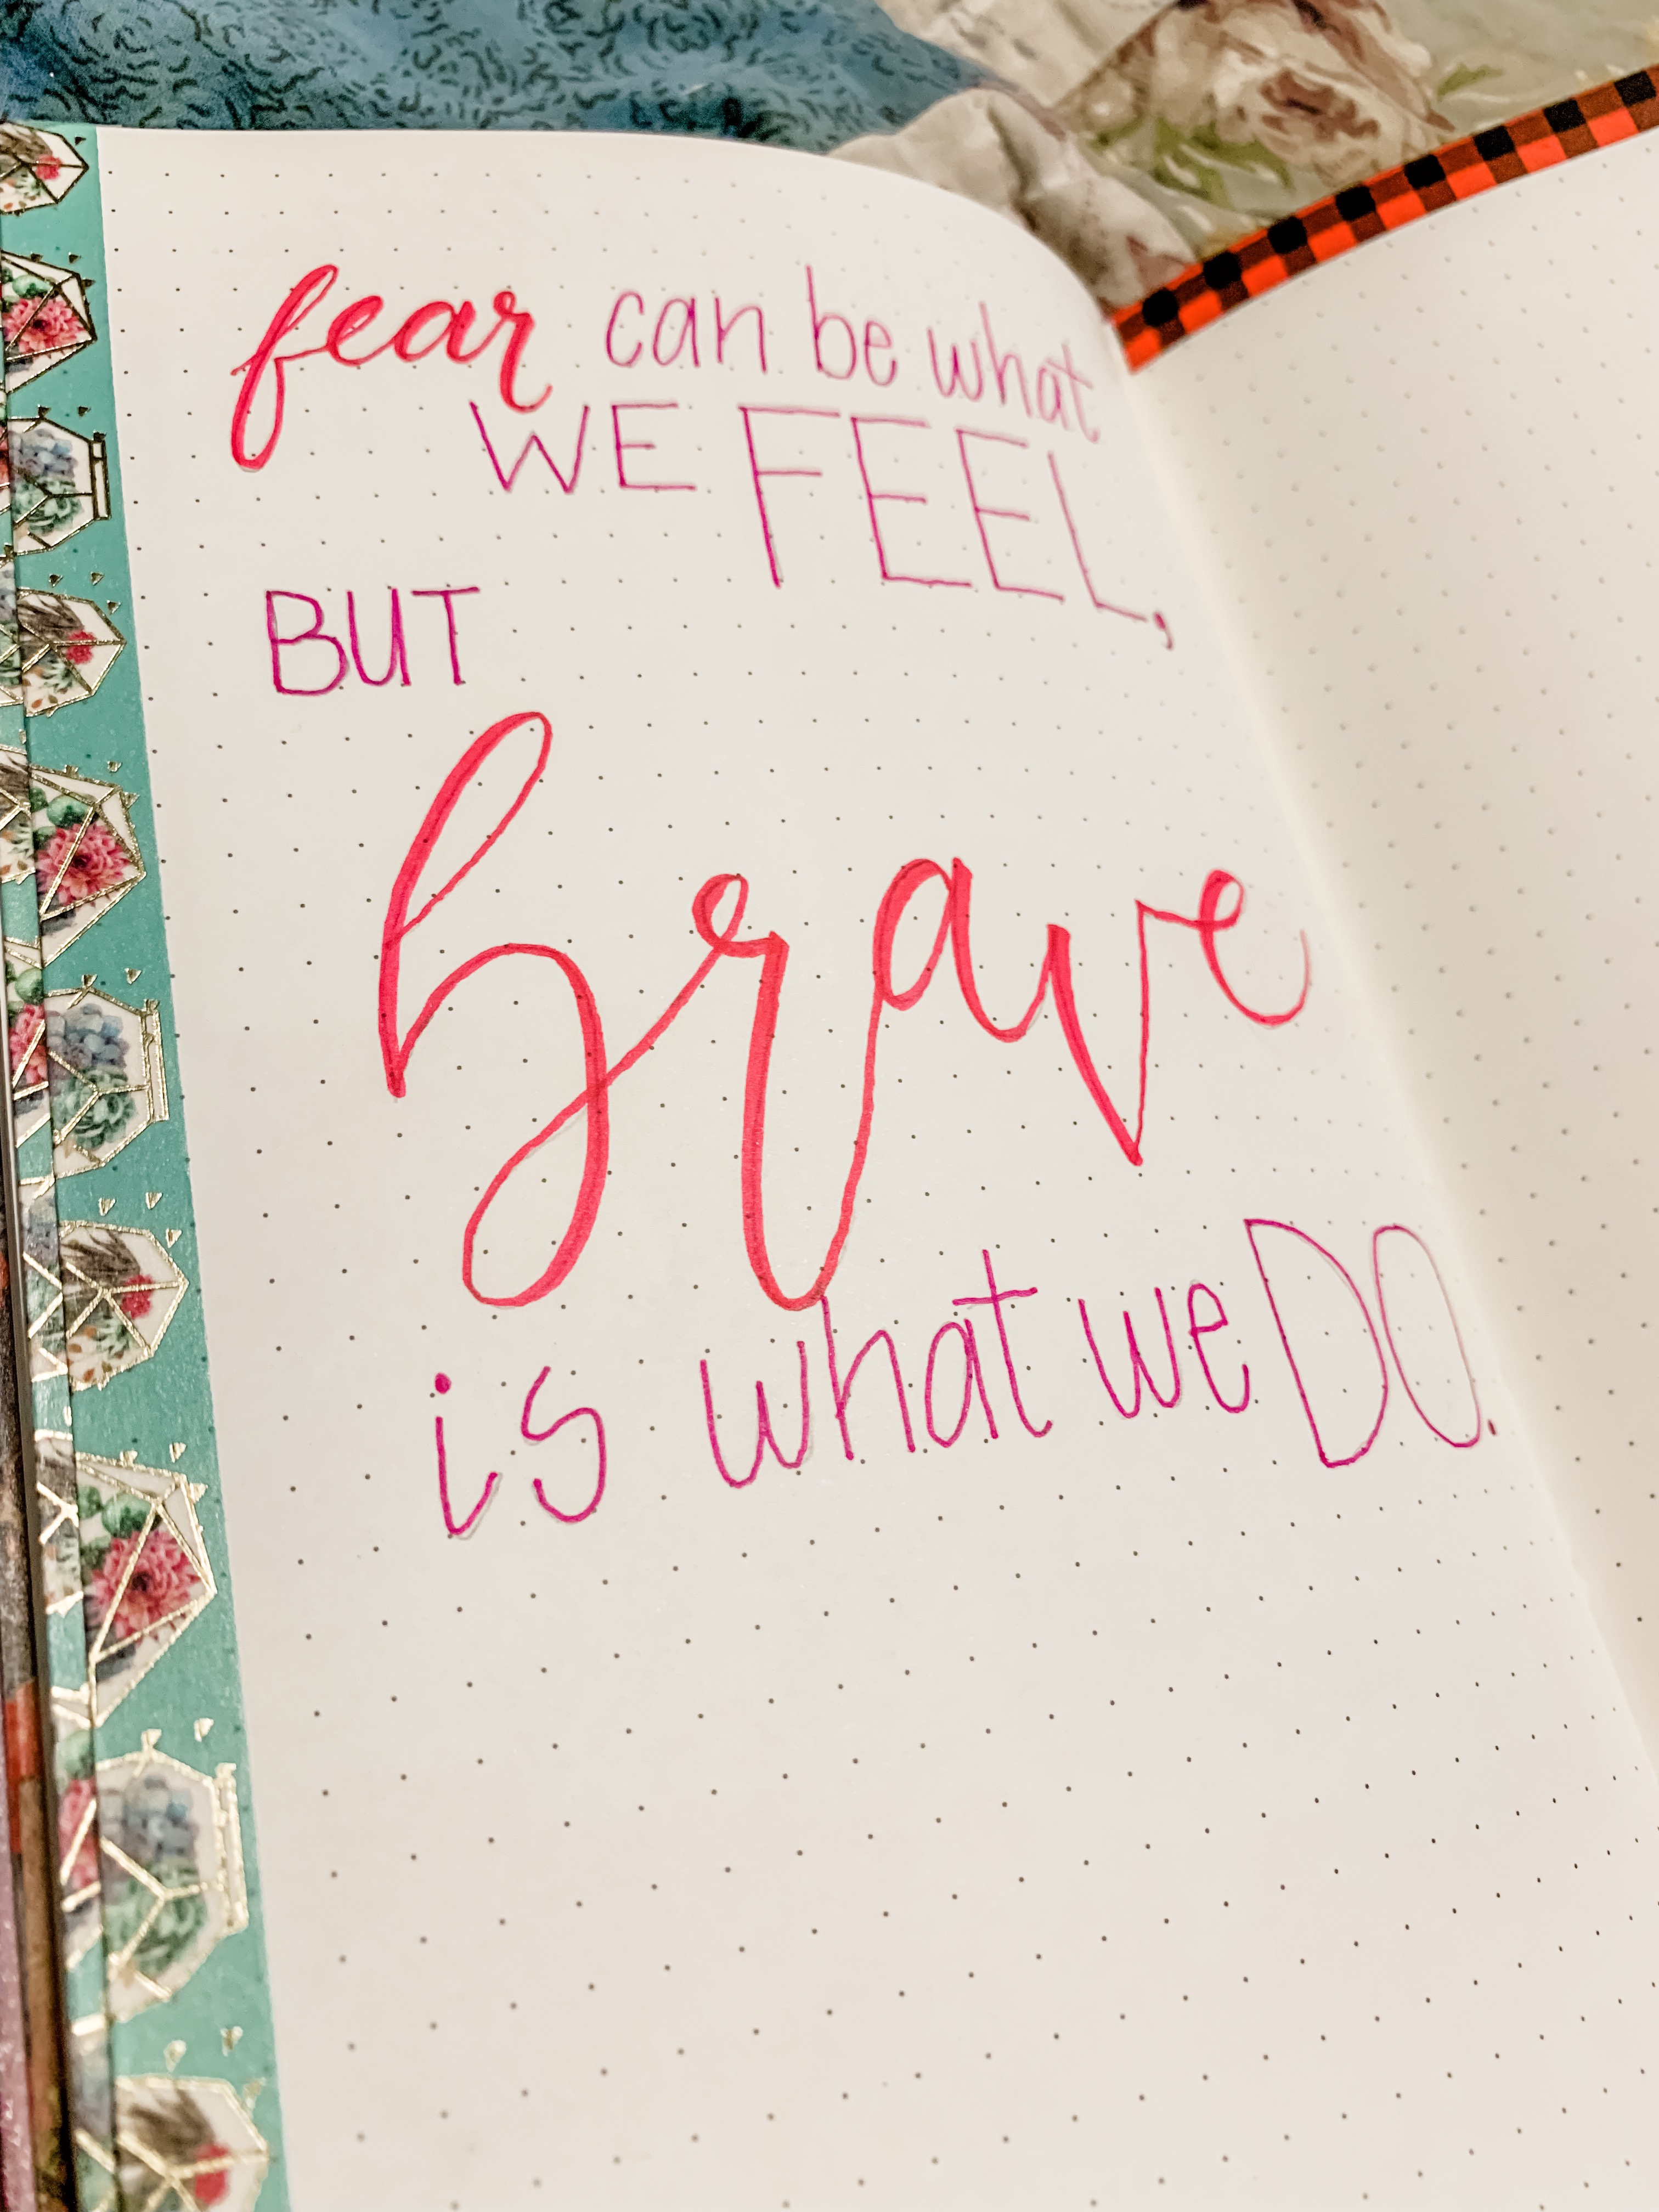 fear can be what
WE FEEL,
BUT
brave
is what we DO.